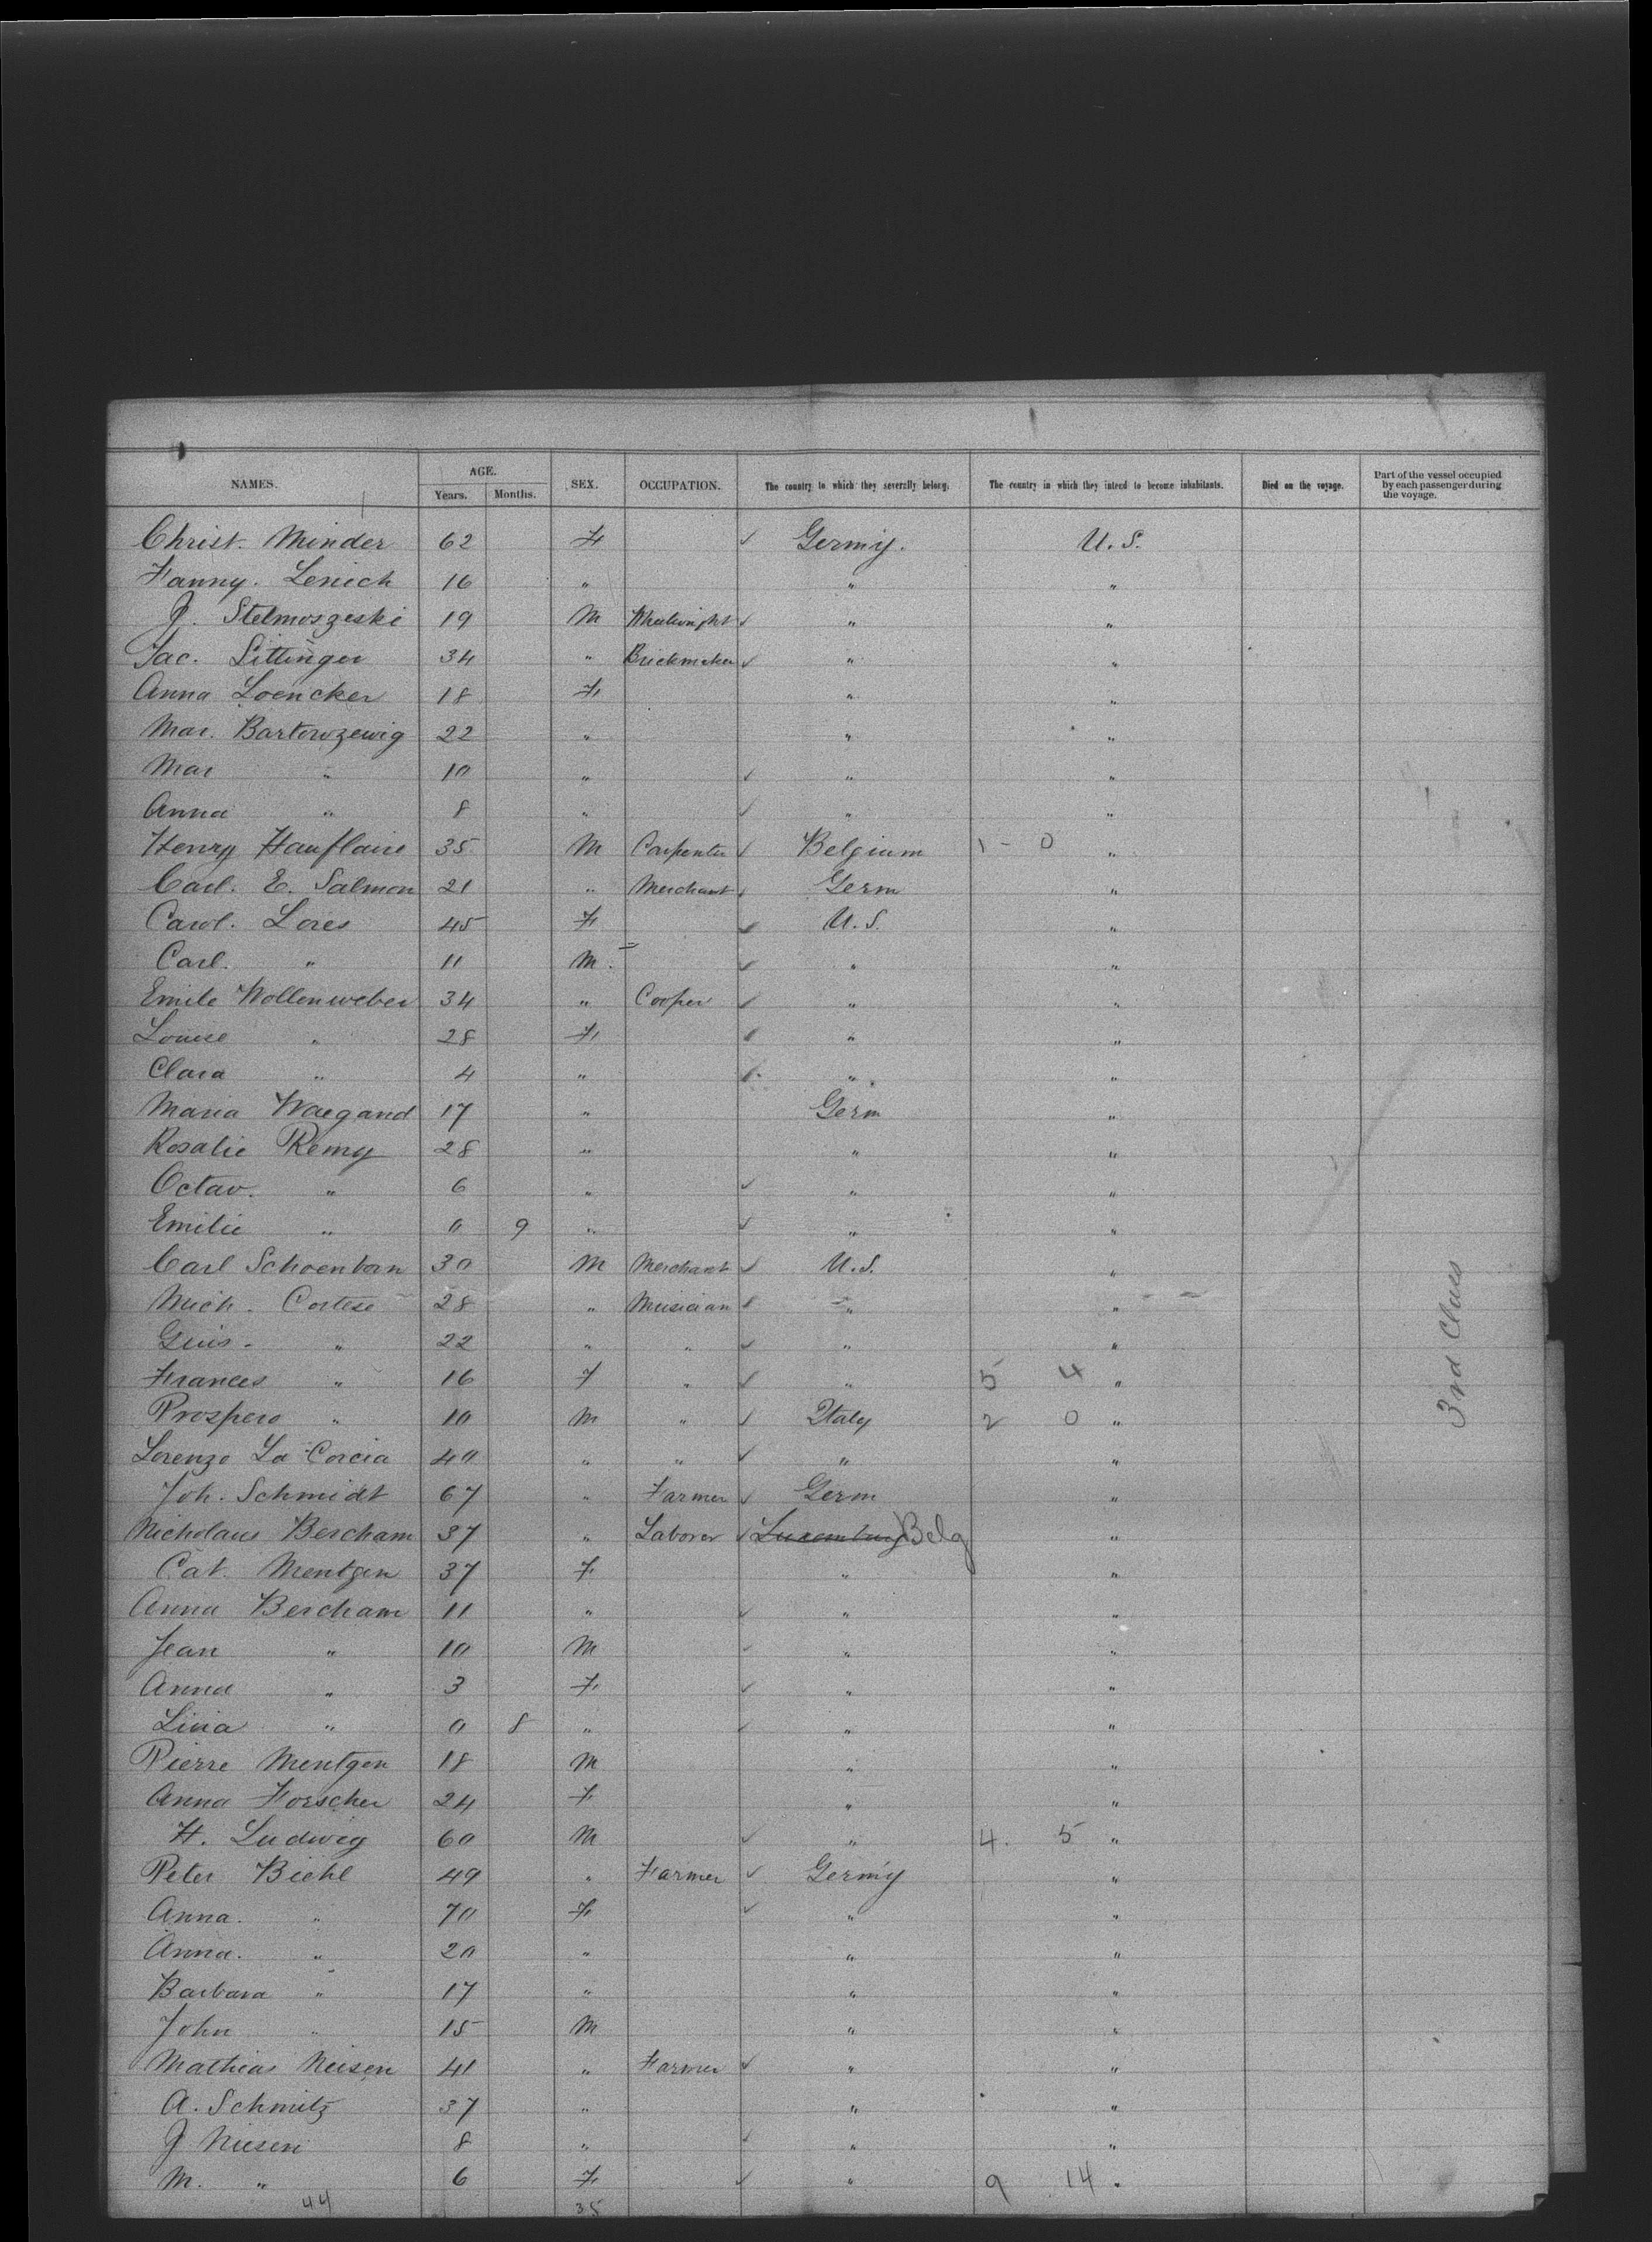 NAMES. AGE. SEX. OCCUPATION. The country to which they severally belong. The country in which they intend to become inhabitants. Died on the voyage. Part of the vessel occupied by each passenger during the voyage.
Years. Months.
Christ. Minder 62 F Germ'y. U.S.
Fanny. Lenich 16 " " "
J. Stelmoszeski 19 M Wheelwright " "
Jac. Sittinger 34 " Brickmaker " "
Anna Loencker 18 F " "
Mar. Bartowzewig 22 " " "
Mar " 10 " " "
Anna " 8 " " "
Henry Hauflaire 35 M Carpenter Belgium 1 - 0 "
Carl. E. Salmon 21 " Merchant Germ "
Carol. Lores 45 F U.S. "
Carl. " 11 M. " "
Emile Wollenweber 34 " Cooper " "
Louise " 28 F " "
Clara " 4 " " "
Maria Waegand 17 " Germ "
Rosalie Remy 28 " " "
Octav. " 6 " " "
Emilie " 0 9 " " "
Carl Schoenborn 30 M Merchant U.S. "
Mich. Cortese 28 " Musician " "
Guis. " 22 " " " "
Frances " 16 F " " 5 4 "
Prospero " 10 M " Italy 2 0 "
Lorenzo La Corcia 40 " " " "
Joh. Schmidt 67 " Farmer Germ "
Nicholaus Bercham 37 " Laborer Luxemburg Belg "
Cat. Mentgen 37 F " "
Anna Bercham 11 " " "
Jean " 10 M " "
Anna " 3 F " "
Lina " 0 8 " " "
Pierre Mentgen 18 M " "
Anna Forscher 24 F " "
H. Ludwig 60 M " 4. 5 "
Peter Biehl 49 " Farmer Germ'y "
Anna. " 70 F " "
Anna. " 20 " " "
Barbara " 17 " " "
John " 15 M " "
Mathias Neisen 41 " Farmer " "
A. Schmitz 37 " " "
J Niesen 8 " " "
M. " 6 F " 9 14 "
44 35
3rd Class